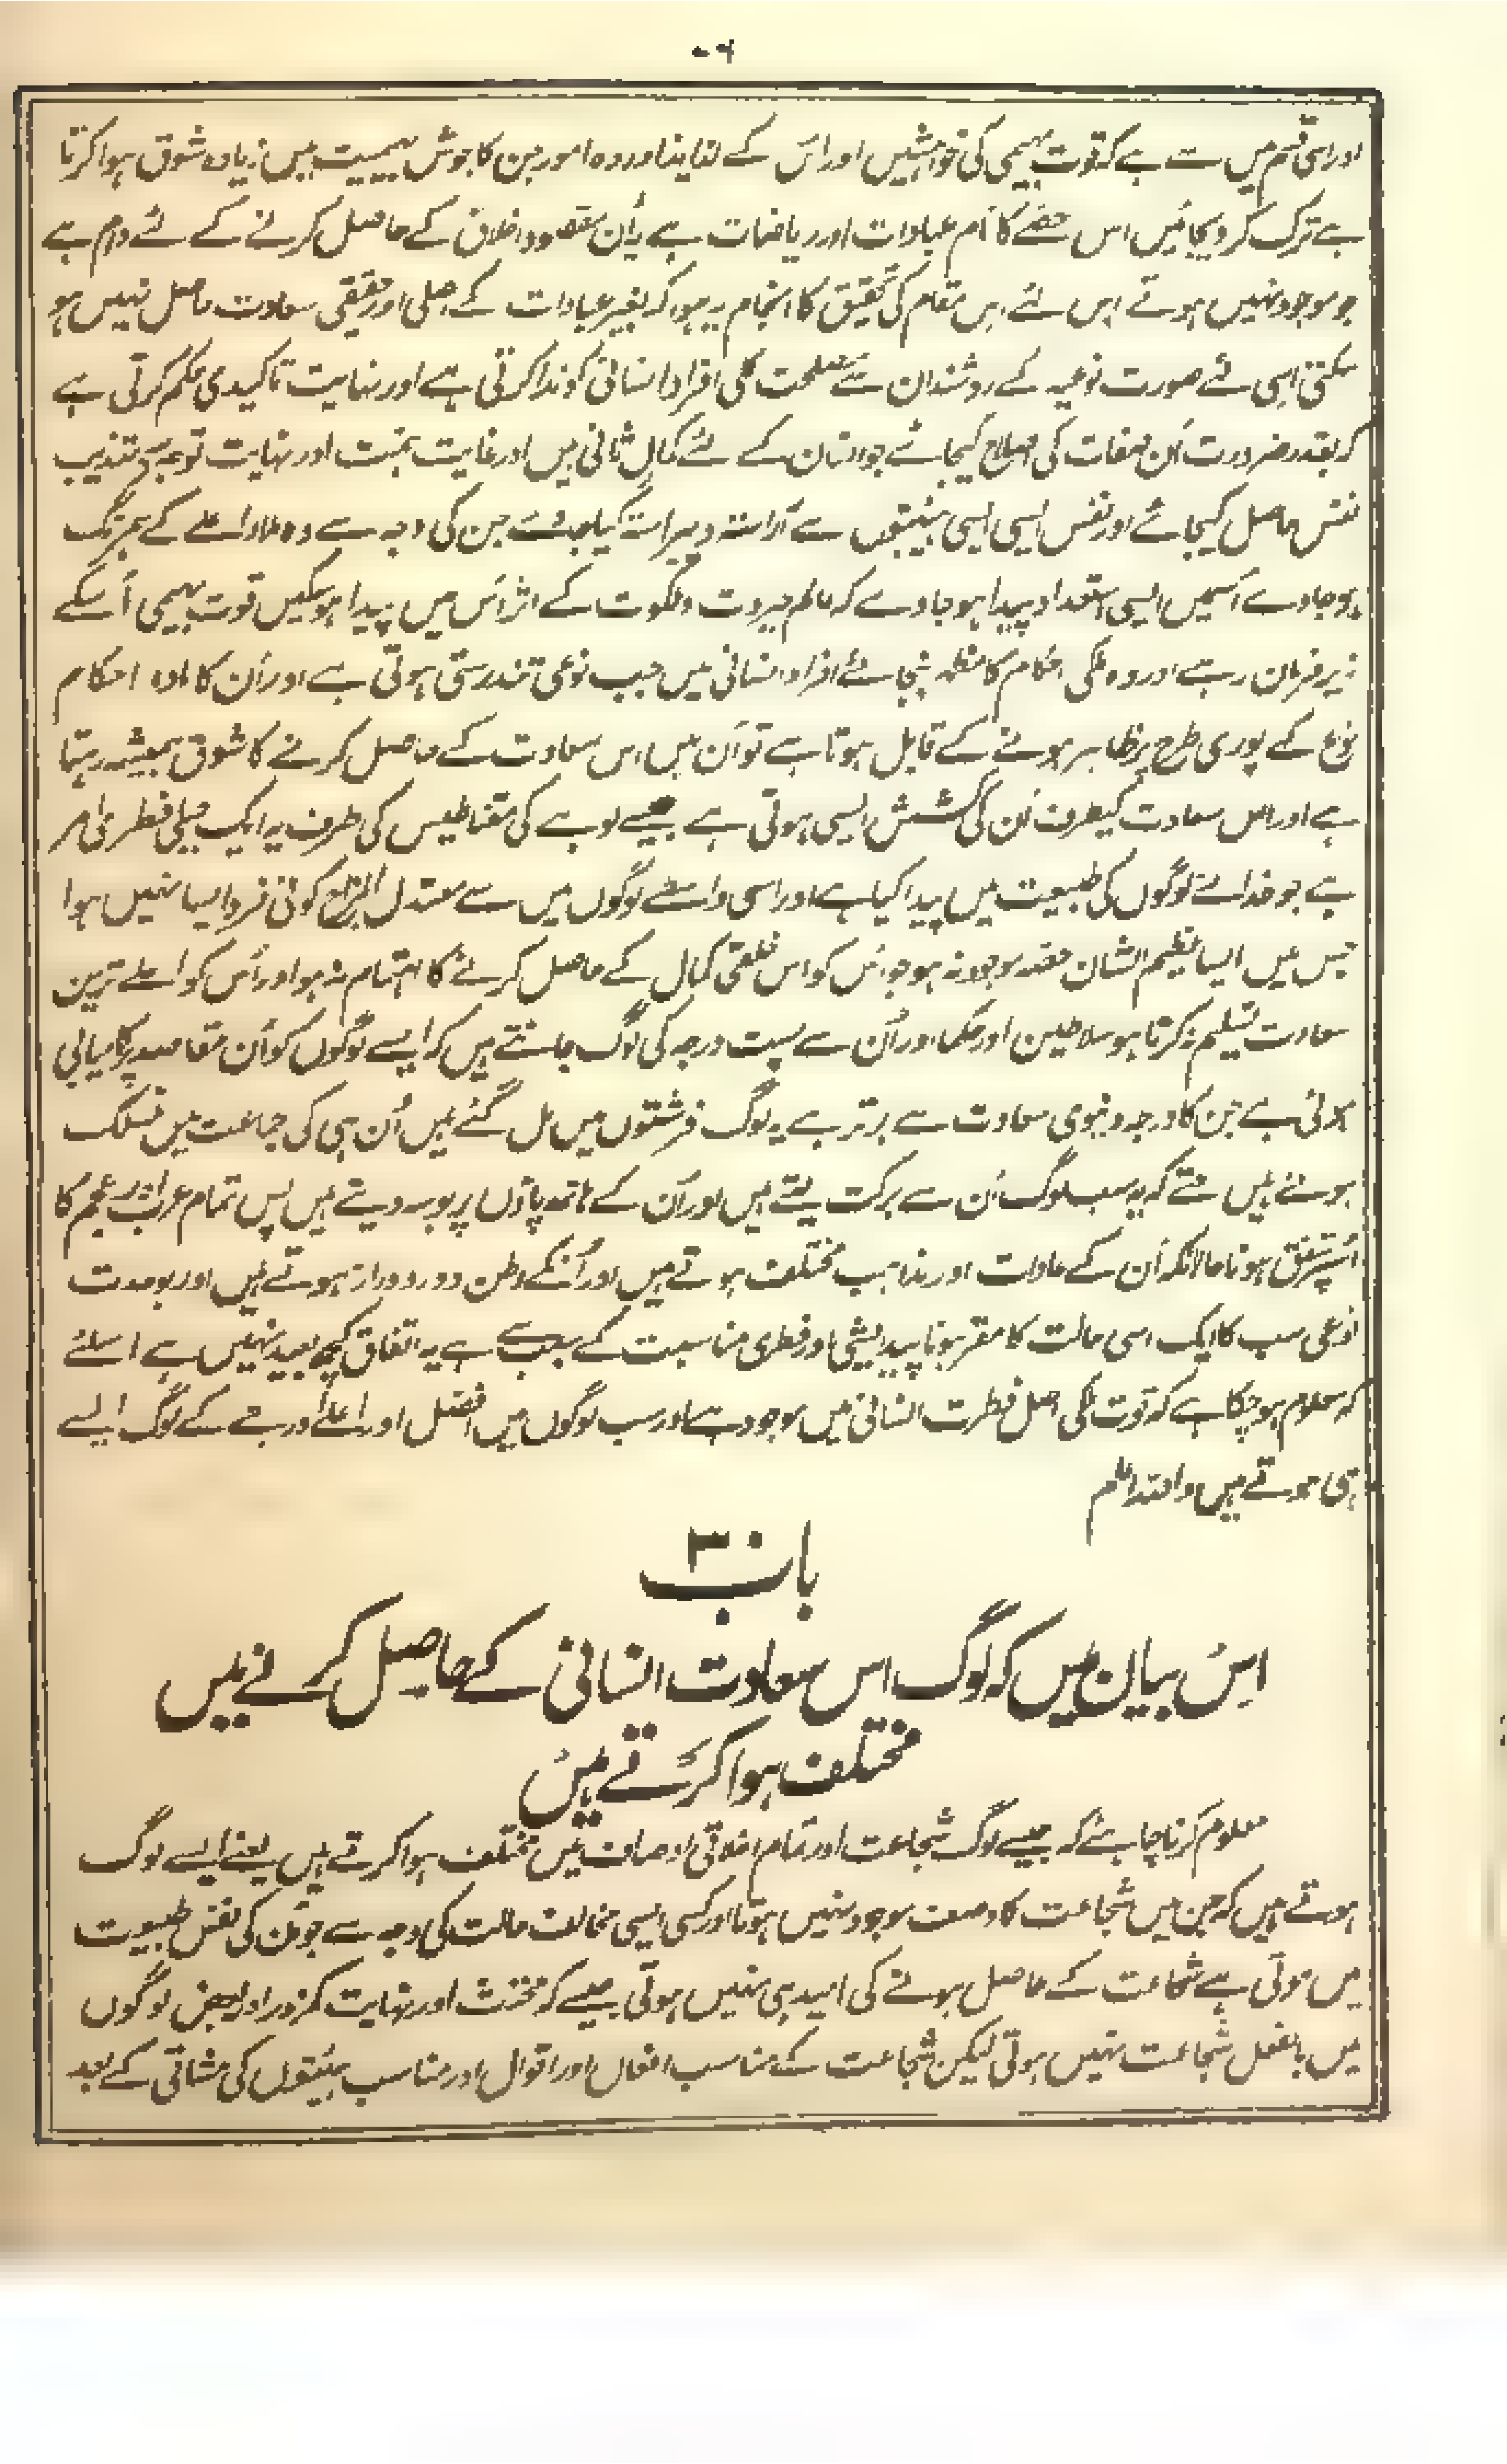 ۶۰
اور اسی قسم میں سے ہے کہ قوت بہیمی کی خواہشیں اور اس کے لذایذ اور وہ امور جن کا جوش بہیمیت میں زیادہ شوق ہوا کرتا
ہے ترک کر دیجائیں اس حصے کا نام عبادات اور ریاضات ہے یہ اُن مقصود اخلاق کے حاصل کرنے کے لئے دام ہے
جو موجود نہیں ہوتے اس لئے اس مقام کی تحقیق کا انجام یہ ہوا کہ بغیر عبادات کے اصلی اور حقیقی سعادت حاصل نہیں ہو
سکتی اسی لئے صورت نوعیہ کے روشندان سے مصلحت کلی افراد انسانی کو ندا کرتی ہے اور نہایت تاکیدی حکم کرتی ہے
کہ بقدر ضرورت اُن صفات کی اصلاح کیجائے جو انسان کے لئے کمال ثانی ہیں اور غایت ہمت اور نہایت توجہ سے تہذیب
نفس حاصل کیجائے اور نفس ایسی ایسی ہیئتوں سے آراستہ و پیراستہ کیا جائے جن کی وجہ سے وہ ملاء اعلے کے ہمرنگ
ہو جاوے اُسمیں ایسی استعداد پیدا ہو جاوے کہ عالم جبروت و ملکوت کے اثر اُس میں پیدا ہو سکیں قوت بہیمی اُسکے
زیر فرمان رہے اور وہ ملکی احکام کا مظہر بنجائے افراد انسانی میں جب نوعی تندرستی ہوتی ہے اور اُن کا مادہ احکام
نوع کے پوری طرح پر ظاہر ہونے کے قابل ہوتا ہے تو اُن میں اس سعادت کے حاصل کرنے کا شوق ہمیشہ رہتا
ہے اور اس سعادت کیطرف اُن کی کشش ایسی ہوتی ہے جیسے لوہے کی مقناطیس کی طرف یہ ایک جبلی فطری امر
ہے جو خدا نے لوگوں کی طبیعت میں پیدا کیا ہے اور اسی واسطے لوگوں میں سے معتدل المزاج کوئی فرد ایسا نہیں ہوا
جس میں ایسا عظیم الشان حصہ موجود نہ ہو جو اُس کو اس خلقی کمال کے حاصل کرنے کا اہتمام نہ ہو اور اُس کو اعلے ترین
سعادت تسلیم نہ کرتا ہو سلاطین اور حکما اور اُن سے پست درجہ کی لوگ جانتے ہیں کہ ایسے لوگوں کو اُن مقاصد پر کامیابی
ہوئی ہے جن کا درجہ دنیوی سعادت سے برتر ہے یہ لوگ فرشتوں میں مل گئے ہیں اُن ہی کی جماعت میں منسلک
ہوئے ہیں حتے کہ یہ سب لوگ اُن سے برکت لیتے ہیں اور اُن کے ہاتھ پاؤں پر بوسہ دیتے ہیں پس تمام عرب اور عجم کا
اُسپر متفق ہونا حالانکہ اُن کے عادات اور مذاہب مختلف ہوتے ہیں اور اُنکے وطن دور دور از ہوتے ہیں اور بوحدت
نوعی سب کا ایک اسی حالت کا مقر ہونا پیدایشی اور فطری مناسبت کے سبب سے ہے یہ اتفاق کچھ بعید نہیں ہے اسلئے
کہ معلوم ہو چکا ہے کہ قوت ملکی اصل فطرت انسانی میں موجود ہے اور سب لوگوں میں افضل اور اعلے درجے کے لوگ ایسے
ہی ہوتے ہیں واللہ اعلم
باب ۳۰
اس بیان میں کہ لوگ اس سعادت انسانی کے حاصل کرنے میں
مختلف ہوا کرتے ہیں
معلوم کرنا چاہئے کہ جیسے لوگ شجاعت اور تمام اخلاقی اوصاف میں مختلف ہوا کرتے ہیں یعنے ایسے لوگ
ہوتے ہیں کہ جن میں شجاعت کا وصف موجود نہیں ہوتا اور کسی ایسی مخالف حالت کی وجہ سے جو اُن کی نفس طبیعت
میں ہوتی ہے شجاعت کے حاصل ہونے کی امید ہی نہیں ہوتی جیسے کہ مخنث اور نہایت کمزور اور بعض لوگوں
میں بالفعل شجاعت نہیں ہوتی لیکن شجاعت کے مناسب افعال اور اقوال اور مناسب ہیئتوں کی مشاقی کے بعد